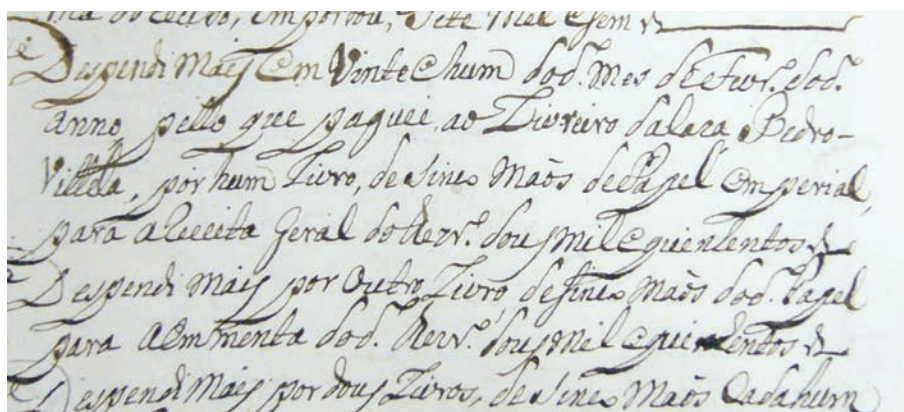 ma do Recido, emportou, Sete Mil e sem rs
Despendi Mais Em Vinte e hum dod.º Mes de Fevr.º dod.º
anno, pello que paguei ao Livreiro da Caza Pedro
Villela, por hum Livro, de Sinco Maõs de Papel Emperial,
para a Receita Geral do Rezv.º dous mil e quinhentos rs
Despendi Mais por Outro Livro de Sinco Maõs dod.º Papel
para a Emmenta dod.º Rezv.º dous Mil e quinhentos rs
Despendi Mais por dous Livros, de Sinco Maõs Cada hum